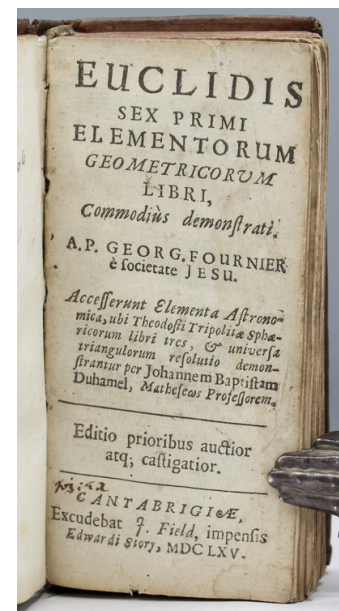 EUCLIDIS
SEX PRIMI
ELEMENTORUM
GEOMETRICORVM
LIBRI,
Commodiùs demonſtrati.
A.P. GEORG. FOURNIER
è ſocietate JESU.
Acceſſerunt Elementa Aſtrono-
mica, ubi Theodoſii Tripolitæ Sphæ-
ricorum libri tres, & univerſa
triangulorum reſolutio demon-
ſtrantur per Johannem Baptiſtam
Duhamel, Matheſeωs Profeſſorem.
Editio prioribus auctior
atq; caſtigatior.
CANTABRIGIÆ,
Excudebat J. Field, impenſis
Edwardi Story, MDCLXV.